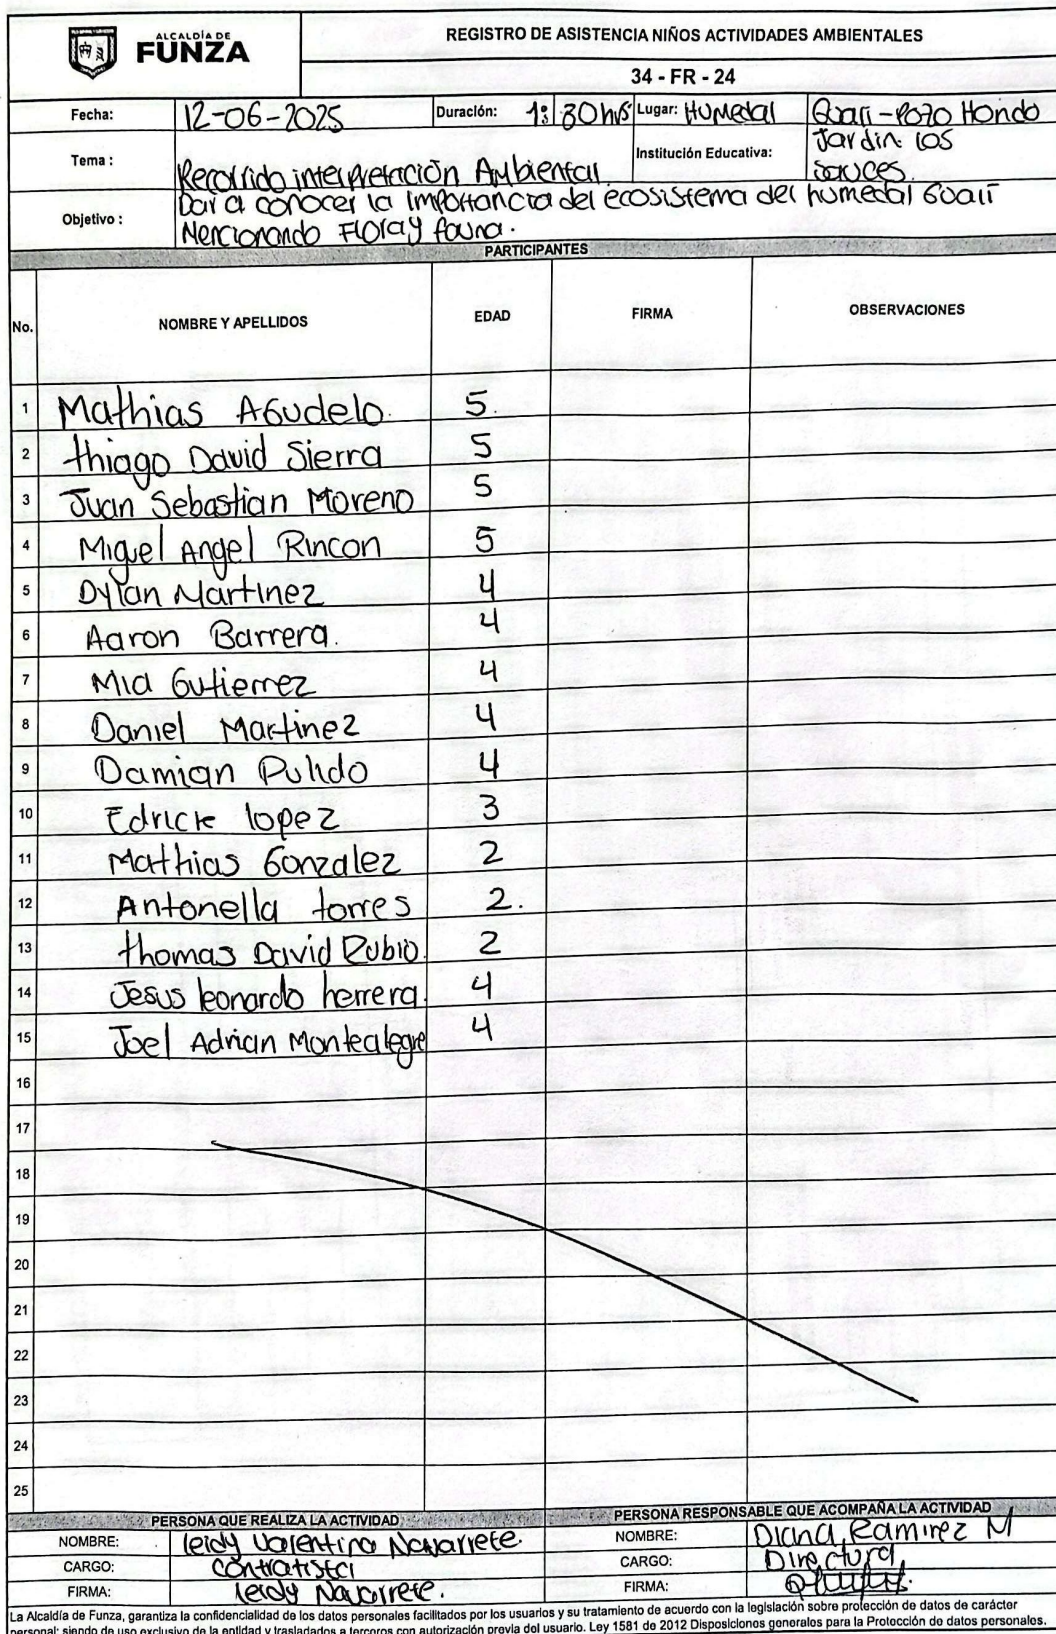 ALCALDÍA DE
FUNZA
REGISTRO DE ASISTENCIA NIÑOS ACTIVIDADES AMBIENTALES
34 - FR - 24
Fecha: 12-06-2025 Duración: 1:30 hrs Lugar: Humedal Guali-Pozo Hondo
Tema : Recorrido interpretación Ambiental Institución Educativa: Jardin los sauces.
Objetivo : Dar a conocer la importancia del ecosistema del humedal Gualí
Mencionando Flora y fauna.
PARTICIPANTES
No. NOMBRE Y APELLIDOS EDAD FIRMA OBSERVACIONES
1 Mathias Agudelo. 5.
2 thiago David Sierra 5
3 Juan Sebastian Moreno 5
4 Miguel Angel Rincon 5
5 Dylan Martinez 4
6 Aaron Barrera. 4
7 Mia Gutierrez 4
8 Daniel Martinez 4
9 Damian Pulido 4
10 Edrick lopez 3
11 Mathias Gonzalez 2
12 Antonella torres 2.
13 thomas David Rubio. 2
14 Jesus leonardo herrera. 4
15 Joel Adrian Montealegre 4
16
17
18
19
20
21
22
23
24
25
PERSONA QUE REALIZA LA ACTIVIDAD PERSONA RESPONSABLE QUE ACOMPAÑA LA ACTIVIDAD
NOMBRE: leidy Valentina Navarrete. NOMBRE: Diana Ramirez M
CARGO: contratista CARGO: Directora
FIRMA: leidy Navarrete. FIRMA:
La Alcaldía de Funza, garantiza la confidencialidad de los datos personales facilitados por los usuarios y su tratamiento de acuerdo con la legislación sobre protección de datos de carácter
personal; siendo de uso exclusivo de la entidad y trasladados a terceros con autorización previa del usuario. Ley 1581 de 2012 Disposiciones generales para la Protección de datos personales.